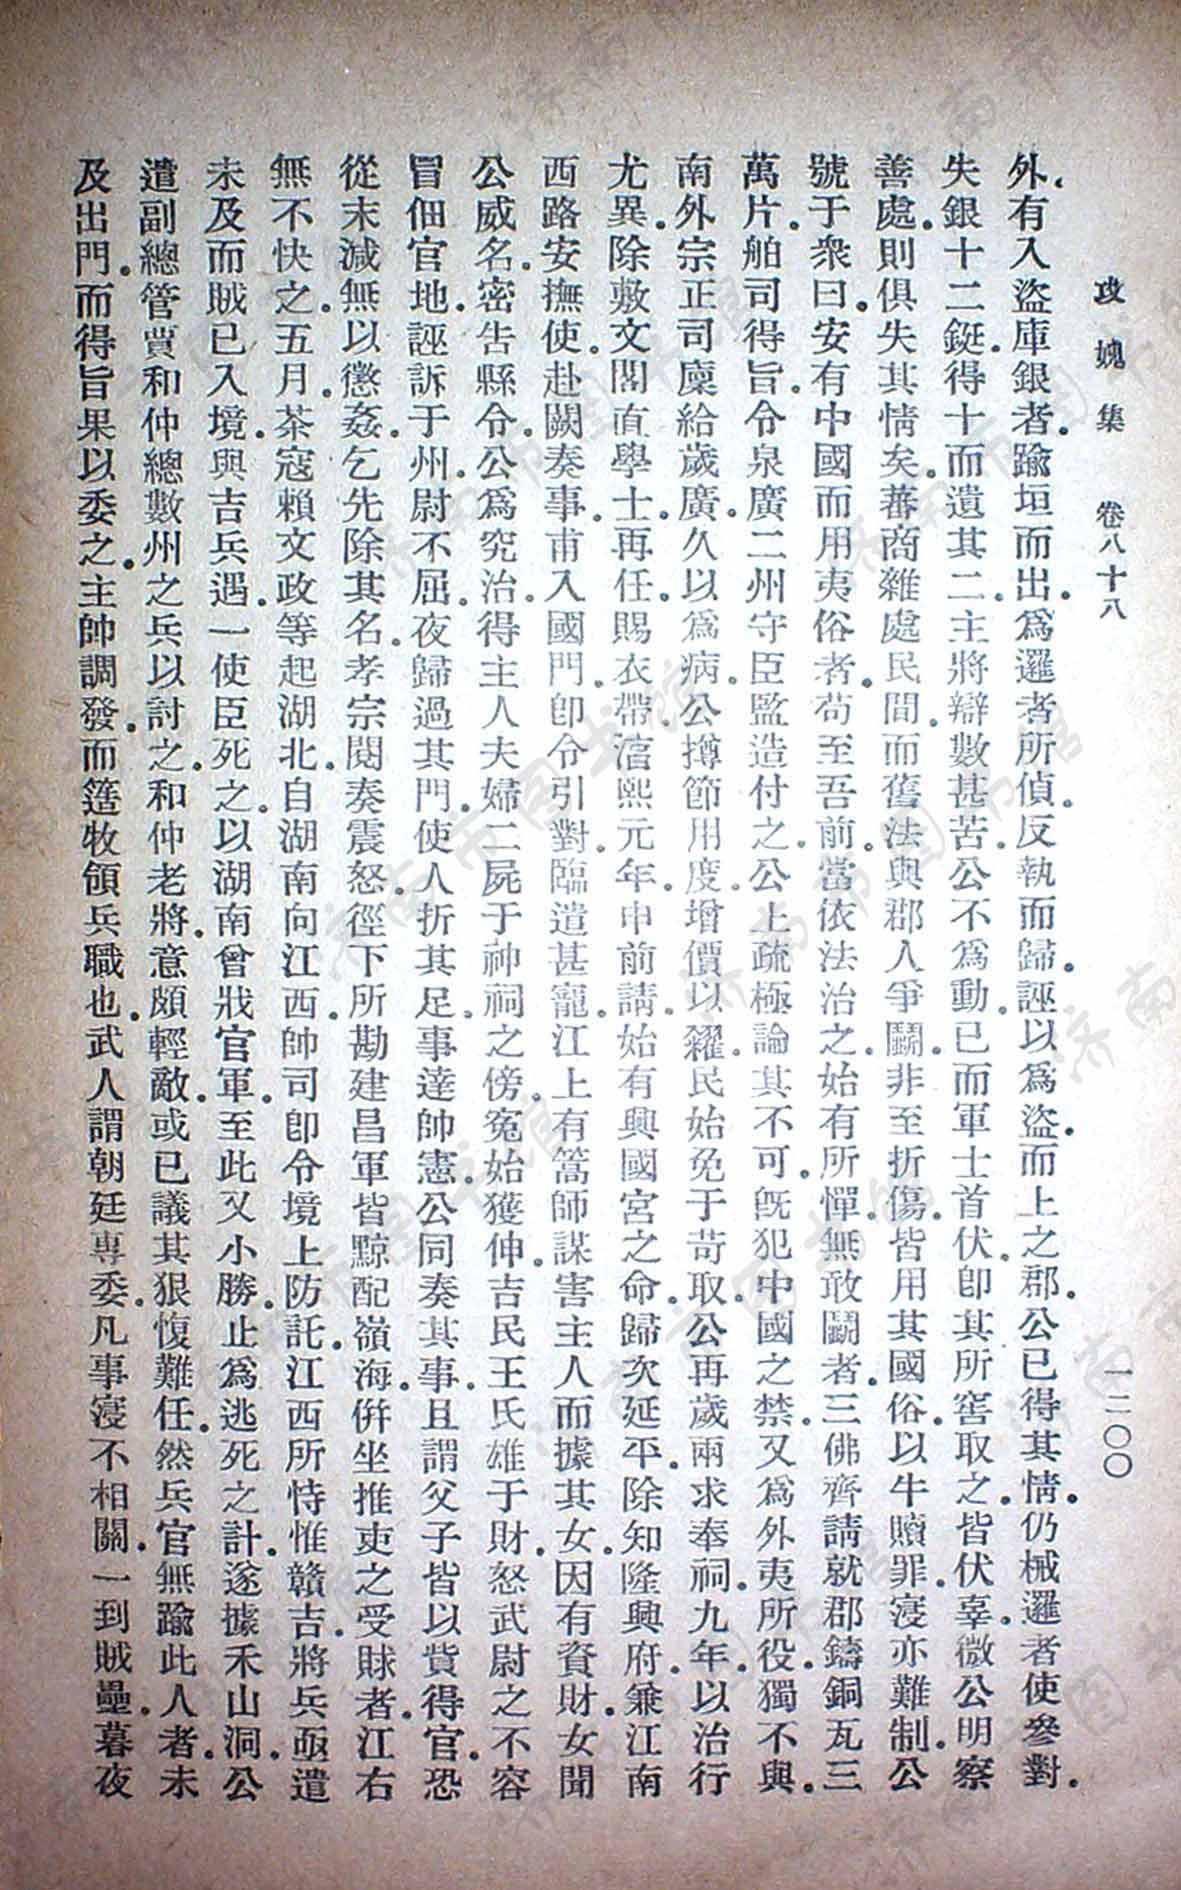 攻媿集 卷八十八 一二〇〇
外、有入盜庫銀者。踰垣而出。爲邏者所偵。反執而歸。誣以爲盜。而上之郡。公已得其情。仍械邏者使參對。
失銀十二鋌。得十而遺其二。主將辯數甚苦。公不爲動。已而軍士首伏。卽其所窖取之。皆伏辜。微公明察
善處。則俱失其情矣。蕃商雜處民間。而舊法與郡人爭鬭。非至折傷。皆用其國俗。以牛贖罪。寖亦難制。公
號于衆曰。安有中國而用夷俗者。苟至吾前。當依法治之。始有所憚。無敢鬭者。三佛齊請就郡鑄銅瓦三
萬片。舶司得旨。令泉廣二州守臣監造付之。公上疏極論其不可。旣犯中國之禁。又爲外夷所役。獨不與。
南外宗正司廩給歲廣。久以爲病。公撙節用度。增價以糴。民始免于苛取。公再歲兩求奉祠。九年。以治行
尤異。除敷文閣直學士。再任。賜衣帶。淳熙元年。申前請。始有興國宮之命。歸次延平。除知隆興府。兼江南
西路安撫使。赴闕奏事。甫入國門。卽令引對。臨遣甚寵。江上有篙師謀害主人而據其女。因有資財。女聞
公威名。密告縣令。公爲究治。得主人夫婦二屍于神祠之傍。冤始獲伸。吉民王氏雄于財。怒武尉之不容
冒佃官地。誣訴于州。尉不屈。夜歸過其門。使人折其足。事達帥憲。公同奏其事。且謂父子皆以貲得官。恐
從末減。無以懲姦。乞先除其名。孝宗閱奏震怒。徑下所勘建昌軍。皆黥配嶺海。倂坐推吏之受賕者。江右
無不快之。五月。茶寇賴文政等起湖北。自湖南向江西。帥司卽令境上防託。江西所恃惟贛吉。將兵亟遣
未及而賊已入境。與吉兵遇。一使臣死之。以湖南曾戕官軍。至此又小勝。止爲逃死之計。遂據禾山洞。公
遣副總管賈和仲總數州之兵以討之。和仲老將。意頗輕敵。或已議其狠愎難任。然兵官無踰此人者。未
及出門。而得旨果以委之。主帥調發。而筳牧領兵職也。武人謂朝廷專委。凡事寖不相關。一到賊壘。暮夜